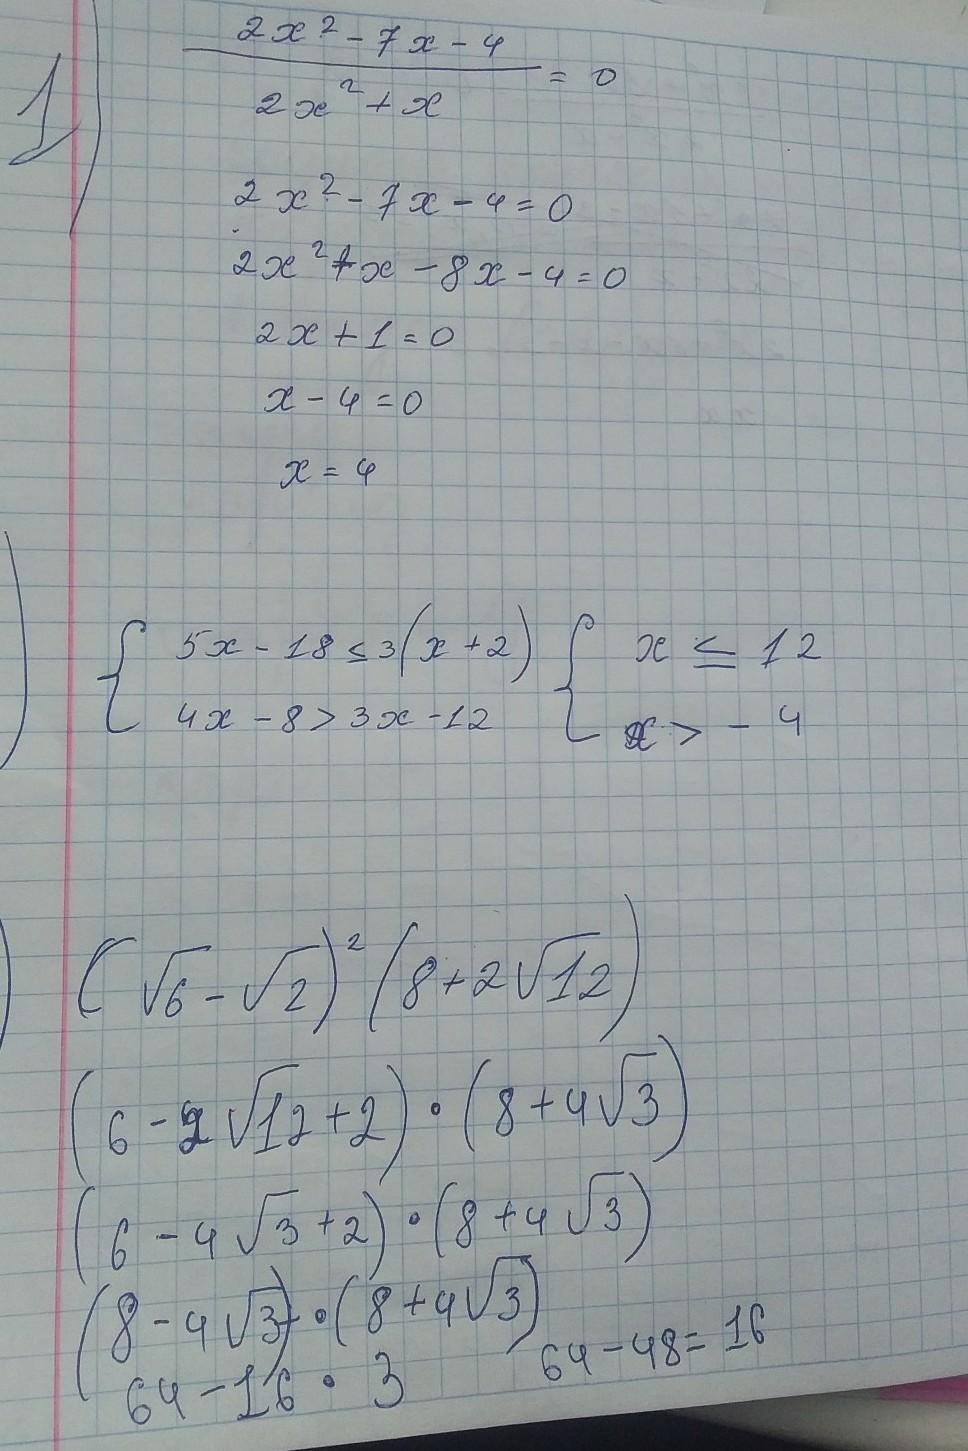 1)
2x² - 7x - 4
2x² + x
= 0
2x² - 7x - 4 = 0
2x² + x - 8x - 4 = 0
2x + 1 = 0
x - 4 = 0
x = 4
{ 5x - 18 ≤ 3(x + 2) { x ≤ 12
4x - 8 > 3x - 12 x > - 4
(√6 - √2)² (8 + 2√12)
(6 - 2√12 + 2) · (8 + 4√3)
(6 - 4√3 + 2) · (8 + 4√3)
(8 - 4√3) · (8 + 4√3)
64 - 16 · 3 64 - 48 = 16